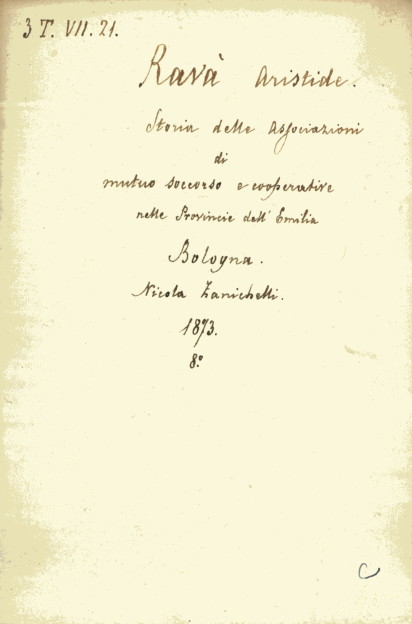 3 T. VII. 21.
Ravà Aristide.
Storia delle Associazioni
di
mutuo soccorso e cooperative
nelle Provincie dell' Emilia
Bologna.
Nicola Zanichelli.
1873.
8.°
C